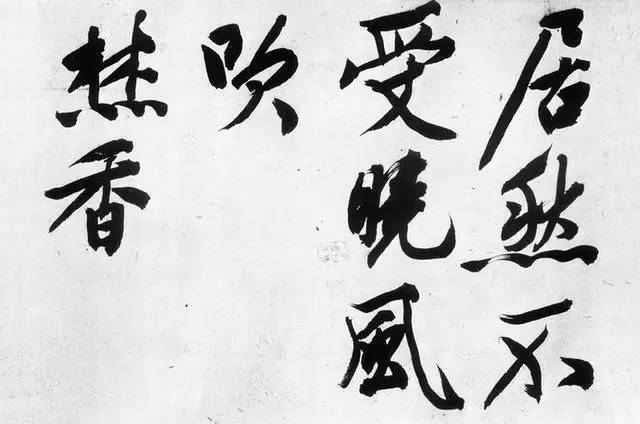 居然不
受曉風
吹
焚香